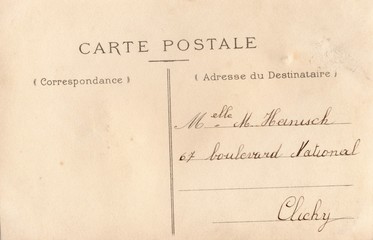 CARTE POSTALE
( Correspondance )
( Adresse du Destinataire )
Melle M. Hanisch
67 boulevard National
Clichy